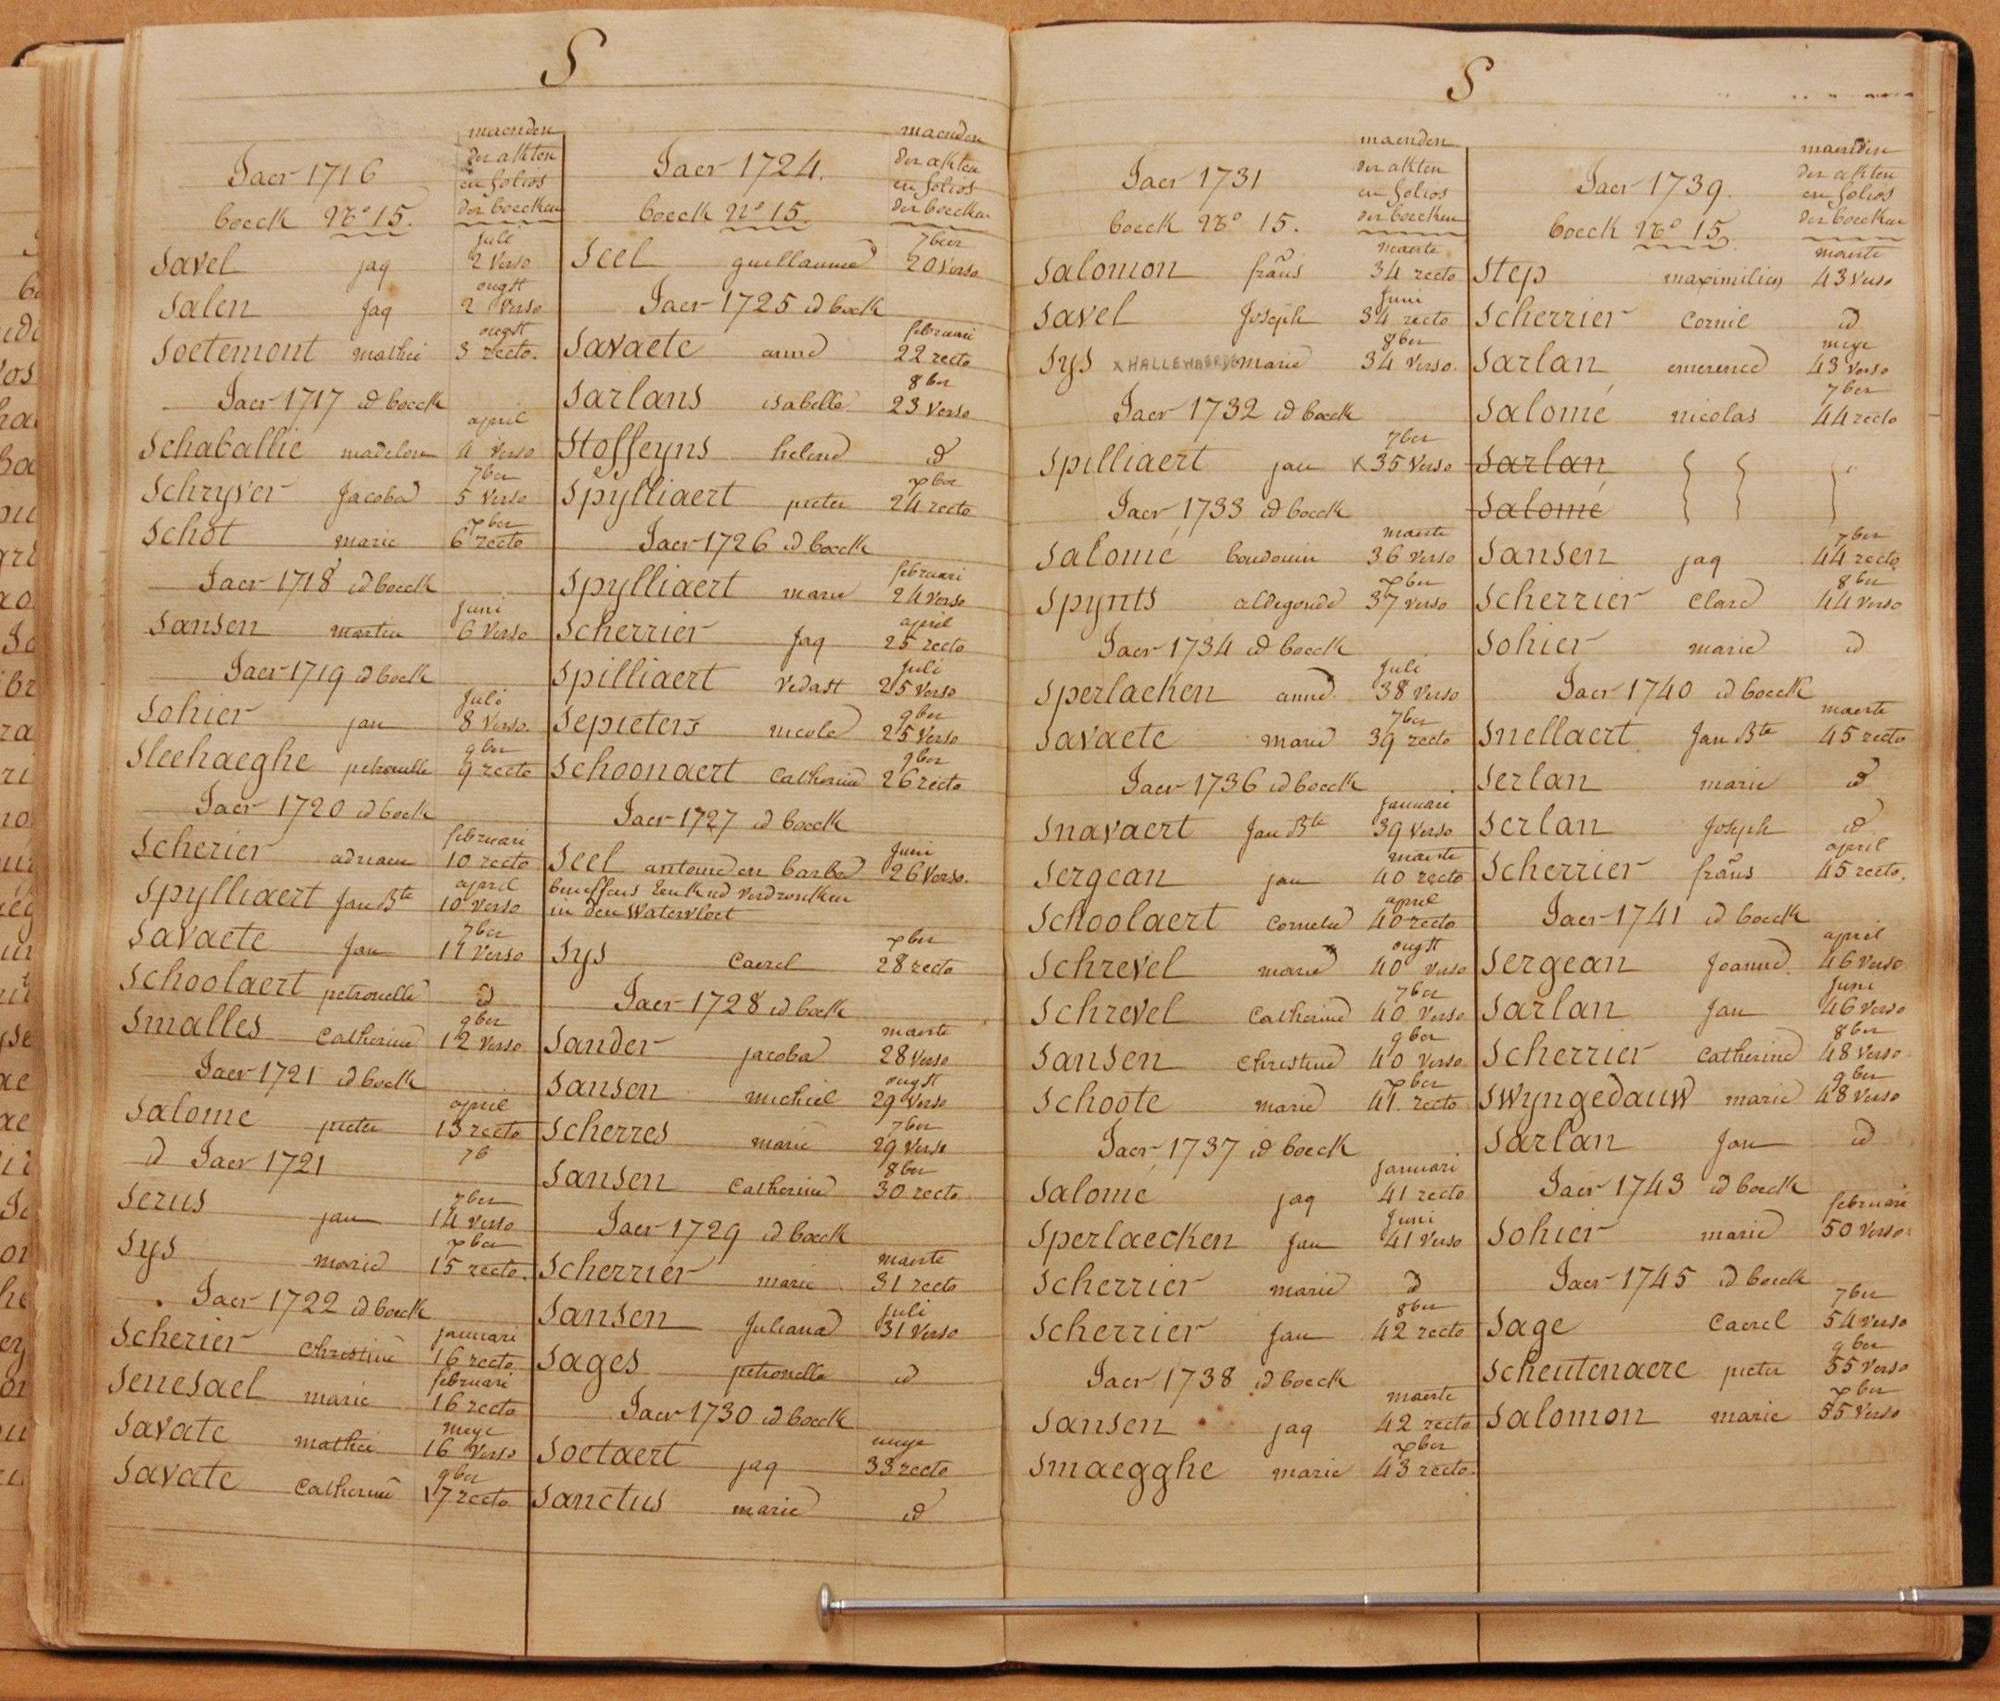 S
Jaer 1716
maenden
der akten
en folios
der boecken
boeck No 15.
juli
Savel jaq 2 verso
ougst
Salen jaq 2 verso
ougst
Soetemont mathie 3 recto.
Jaer 1717 id boeck
april
Schaballie madelon 4 verso
7ber
Schryver jacoba 5 verso
xber
Schot marie 6 recto
Jaer 1718 id boeck
juni
Sansen martin 6 verso
Jaer 1719 id boeck
juli
Sohier jan 8 verso.
9ber
Sleehaeghe petronelle 9 recto
Jaer 1720 id boeck
februari
Scherier adriaen 10 recto
april
Spylliaert jan Bte 10 verso
7ber
Savaete jan 11 verso
Schoolaert petronelle id
9ber
Smalles Catherine 12 verso
Jaer 1721 id boeck
april
Salome pieter 13 recto
id Jaer 1721 7b
7ber
Serus jan 14 verso
xber
Sys marie 15 recto.
Jaer 1722 id boeck
januari
Scherier Christine 16 recto
februari
Senesael marie 16 recto
meye
Savate mathie 16 verso
9ber
Savate Catherine 17 recto
Jaer 1724.
maenden
der akten
en folios
der boecken
boeck No 15.
7ber
Seel guillaume 20 verso
Jaer 1725 id boeck
februari
Savaete anne 22 recto
8ber
Sarlans isabelle 23 verso
Stoffeyns helene id
xber
Spylliaert pieter 24 recto
Jaer 1726 id boeck
februari
Spylliaert marie 24 verso
april
Scherrier jaq 25 recto
juli
Spilliaert vedast 25 verso
9ber
Sepieters nicole 25 verso
9ber
Schoonaert Catherine 26 recto
Jaer 1727 id boeck
juni
Seel antoine en barbe 26 verso.
beneffens een kind verdroncken
in den watervloet
xber
Sys Caerel 28 recto
Jaer 1728 id boeck
maerte
Sander jacoba 28 verso
ougst
Sansen michiel 29 verso
7ber
Scherres marie 29 verso
8ber
Sansen Catherine 30 recto
Jaer 1729 id boeck
maerte
Scherrier marie 31 recto
juli
Sansen juliana 31 verso
Sages petronelle id
Jaer 1730 id boeck
meye
Soetaert jaq 33 recto
Sanctus marie id
S
Jaer 1731
maenden
der akten
en folios
der boecken
boeck No 15.
maerte
Salomon frans 34 recto
juni
Savel joseph 34 recto
8ber
Sys x marie 34 verso.
Jaer 1732 id boeck
7ber
Spilliaert jan x 35 verso
Jaer 1733 id boeck
maerte
Salomé boudouin 36 verso
xber
Spynts aldegonde 37 verso
Jaer 1734 id boeck
juli
Sperlaeken anne 38 verso
7ber
Savaete marie 39 recto
Jaer 1736 id boeck
januari
Snavaert jan Bte 39 verso
maerte
Sergean jan 40 recto
april
Schoolaert cornelie 40 recto
ougst
Schrevel marie 40 verso
7ber
Schrevel Catherine 40 verso
9ber
Sansen Christine 40 verso
xber
Schoote marie 41. recto
Jaer 1737 id boeck
januari
Salomé jaq 41 recto
juni
Sperlaecken jan 41 verso
Scherrier marie id
8ber
Scherrier jan 42 recto
Jaer 1738 id boeck
maerte
Sansen jaq 42 recto
xber
Smaegghe marie 43 recto
Jaer 1739.
maenden
der akten
en folios
der boecken
boeck No 15.
maerte
Step maximilien 43 verso
Scherrier Cornil id
meye
Sarlan emerence 43 verso
7ber
Salomé nicolas 44 recto
Sarlan
Salomé
7ber
Sansen jaq 44 recto
8ber
Scherrier Clare 44 verso
Sohier marie id
Jaer 1740 id boeck
maerte
Snellaert jan Bte 45 recto
Serlan marie id
Serlan joseph id
april
Scherrier frans 45 recto.
Jaer 1741 id boeck
april
Sergean joanne 46 verso
juni
Sarlan jan 46 verso
8ber
Scherrier Catherine 48 verso
9ber
Swyngedauw marie 48 verso
Sarlan jan id
Jaer 1743 id boeck
februari
Sohier marie 50 verso
Jaer 1745 id boeck
7ber
Sage Caerel 54 verso
9ber
Scheutenaere pieter 55 verso
xber
Salomon marie 55 verso